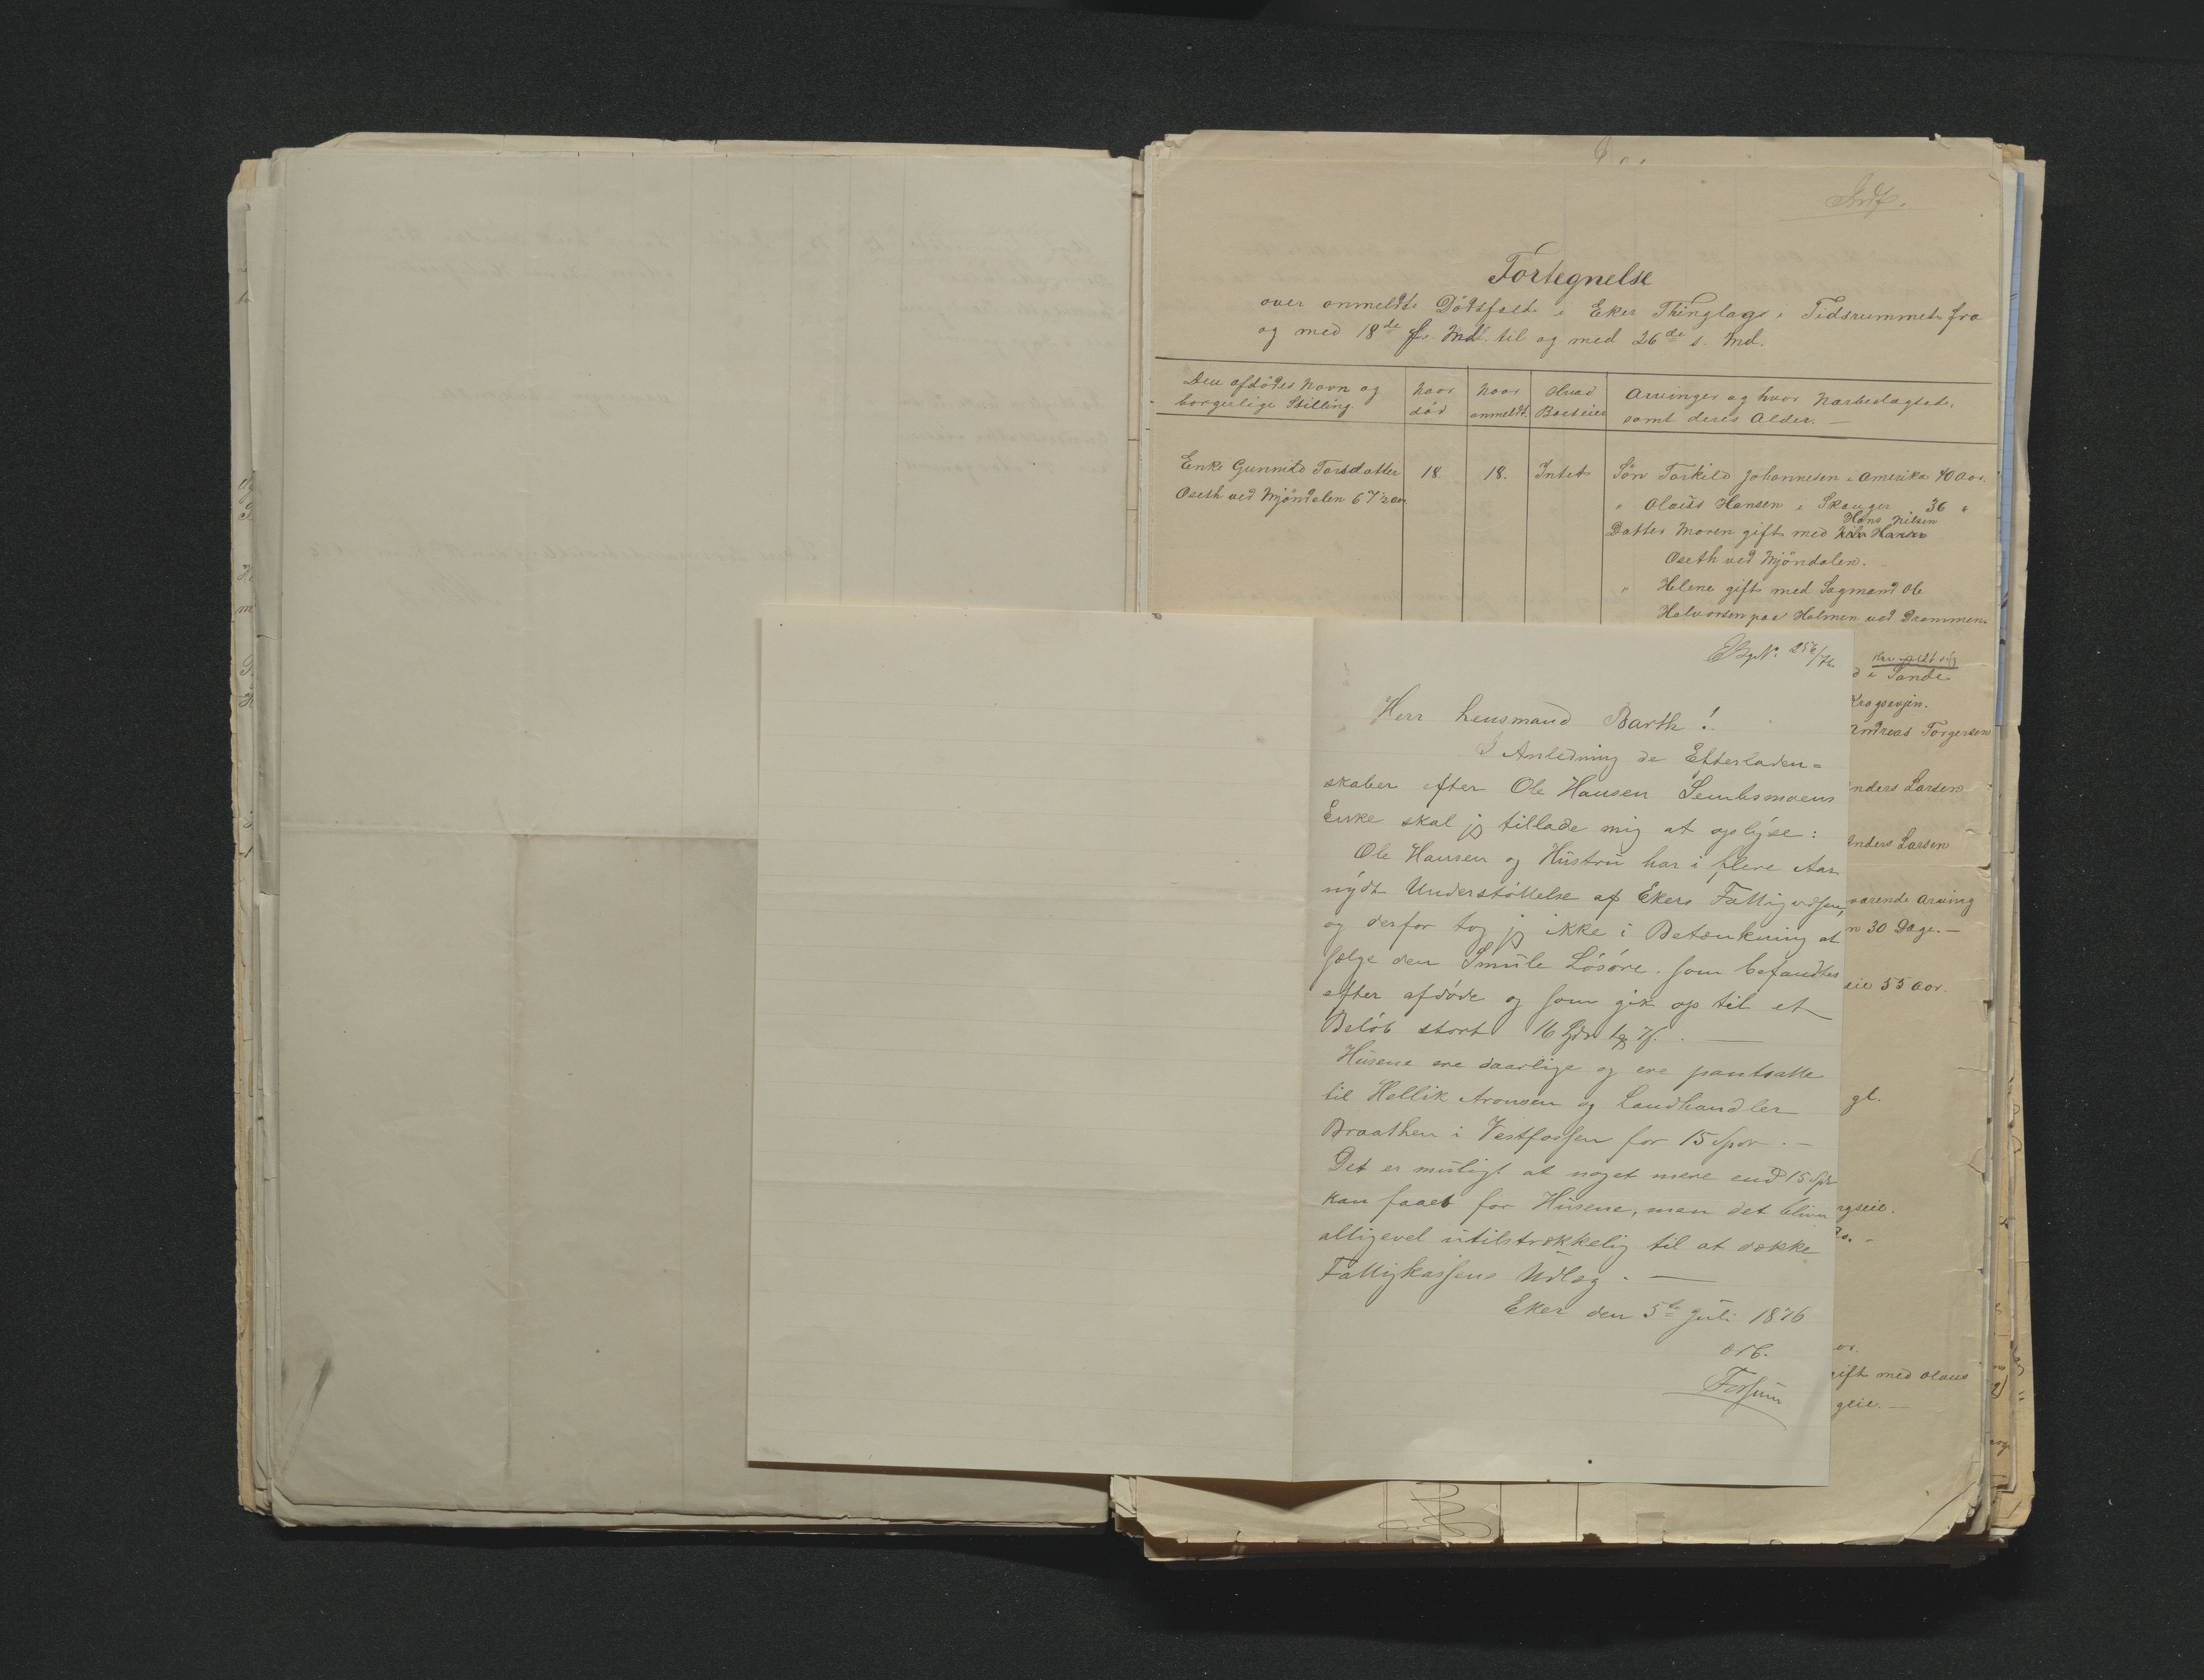 Indf.
Fortegnelse
over anmeldte Dödsfald i Eker Thinglag i Tidsrummet fra
og med 18de f. Md. til og med 26de s. Md.
Den afdödes Navn og
borgerlige Stilling.
Naar
död
Naar
anmeldt.
Hvad
Boet eier
Arvinger og hvor Nærbeslægtede,
samt deres Alder. —
Enke Gunnild Torsdatter
Oseth ved Mjöndalen 67½ aar.
18.
18.
Intet
Sön Torkild Johannesen i Amerika 40 Aar.
" Olaüs Hansen i Skauger 36 "
Hans Nilsen
Datter Maren gift med Nils Hansen
Oseth ved Mjöndalen.
" Helene gift med Sagmand Ole
Halvorsen paa Holmen ved Drammen.
d i Sande
Krogsevjen.
Andreas Torgersen
nders Larsen
Anders Larsen
værende Arving
n 30 Dage. —
eie 55 Aar.
gl.
rgseie.
gift med Olaus
geie. —
No. 256/76.
Herr Lensmand Barth!
I Anledning de Efterladen-
skaber efter Ole Hansen Sembsmoens
Enke skal jeg tillade mig at oplÿse:
Ole Hansen og Hüstrü har i flere Aar
nÿdt Understöttelse af Ekers Fattigvæsen,
og derfor tog jeg ikke i Betænkning at
sælge den Smüle Lösöre som befandtes
efter afdöde og som gik op til et
Belöb stort 16 Spd
Hüsene ere daarlige og ere pantsatte
til Hellik Aronsen og Landhandler
Braathen i Vestfossen for 15 Spd. —
Det er müligt at noget mere end 15 Spd
kan faaes for Hüsene, men det bliver
alligevel ütilstrækkelig til at dække
Fattigkassens Udlæg. —
Eker den 5te Juli 1876
ærb.
Fossüm